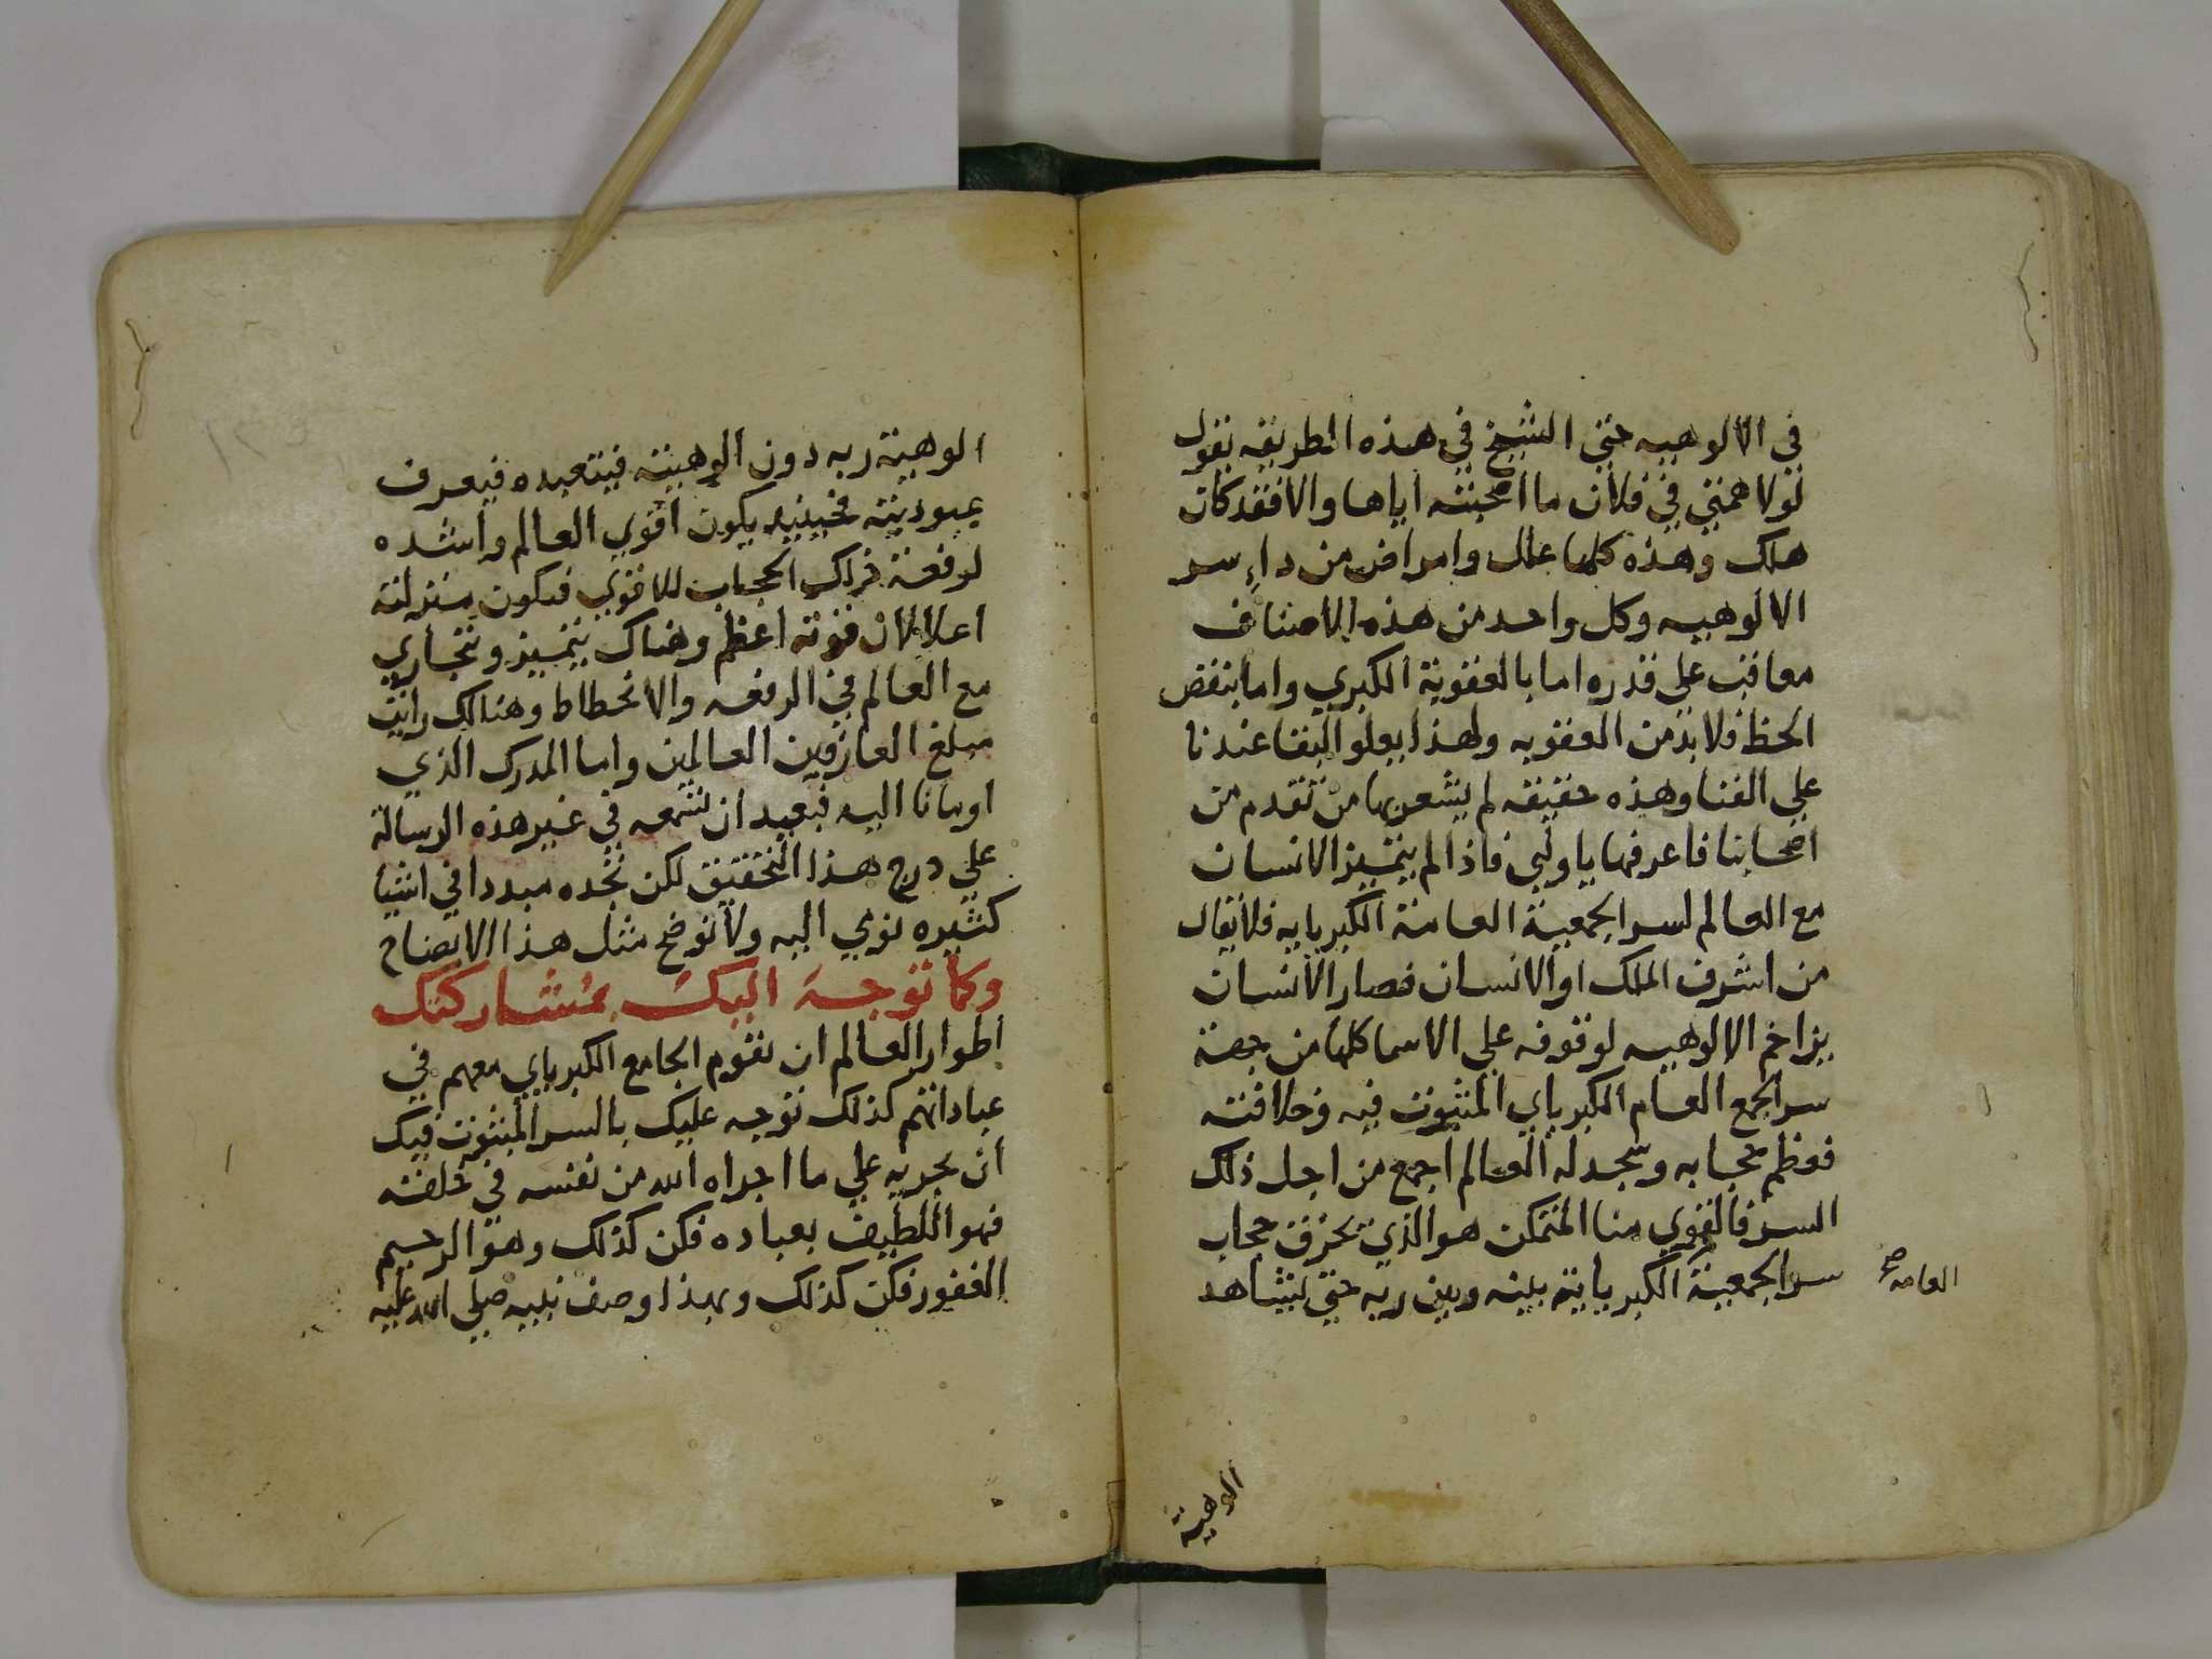 في الالوهيه حتي الشيخ في هذه الطريقه يقول
لولا همتي في فلان ما امحبته اياها والا فقد كان
هلك وهذه كلها علل وامراض من داء سر
الالوهيه وكل واحد من هذه الاصناف
معاقب علي قدره اما بالعقوبة الكبري واما بنقص
الحظ فلا بد من العقوبه ولهذا يعلو البقا عندنا
علي الفنا وهذه حقيقه لم يشعر بها من تقدم من
اصحابنا فاعرفها يا ولي فاذا لم يتميز الانسان
مع العالم لسر الجمعية العامة الكبريايه فلا يقال
من اشرف الملك او الانسان فصار الانسان
يزاخم الالوهيه لوقوفه علي الاسما كلها من جهة
سر الجمع العام الكبرياي المبثوت فيه وخلافته
فعظم حجابه وسجد له العالم اجمع من اجل ذلك
السر فالقوي منا المتمكن هو الذي يخرق حجاب
سر الجمعية الكبرياية بينه وبين ربه حتي يشاهد
العامه صح
الوهية
الوهية ربه دون الوهيته فيتعبده فيعرف
عبوديته فحينيذ يكون اقوي العالم واشده
لرفعة ذلك الحجاب للاقوي فتكون منزلته
اعلا لان قوته اعظم وهناك يتميز ويتجاري
مع العالم في الرفعه والانحطاط وهنالك رايت
مبلغ العارفين العالمين واما المدرك الذي
اومانا اليه فبعيد ان تسمعه في غير هذه الرسالة
علي درج هذا التحقيق لكن تجده مبددا في اشيا
كثيره نومي اليه ولا نوضح مثل هذا الايضاح
وكما توجه اليك بمشاركتك
اطوار العالم ان تقوم الجامع الكبرياي معهم في
عباداتهم كذلك توجه عليك بالسر المبثوت فيك
ان تجريه علي ما اجراه الله من نفسه في خلقه
فهو اللطيف بعباده فكن كذلك وهو الرحيم
الغفور فكن كذلك وبهذا وصف نبيه صلي الله عليه